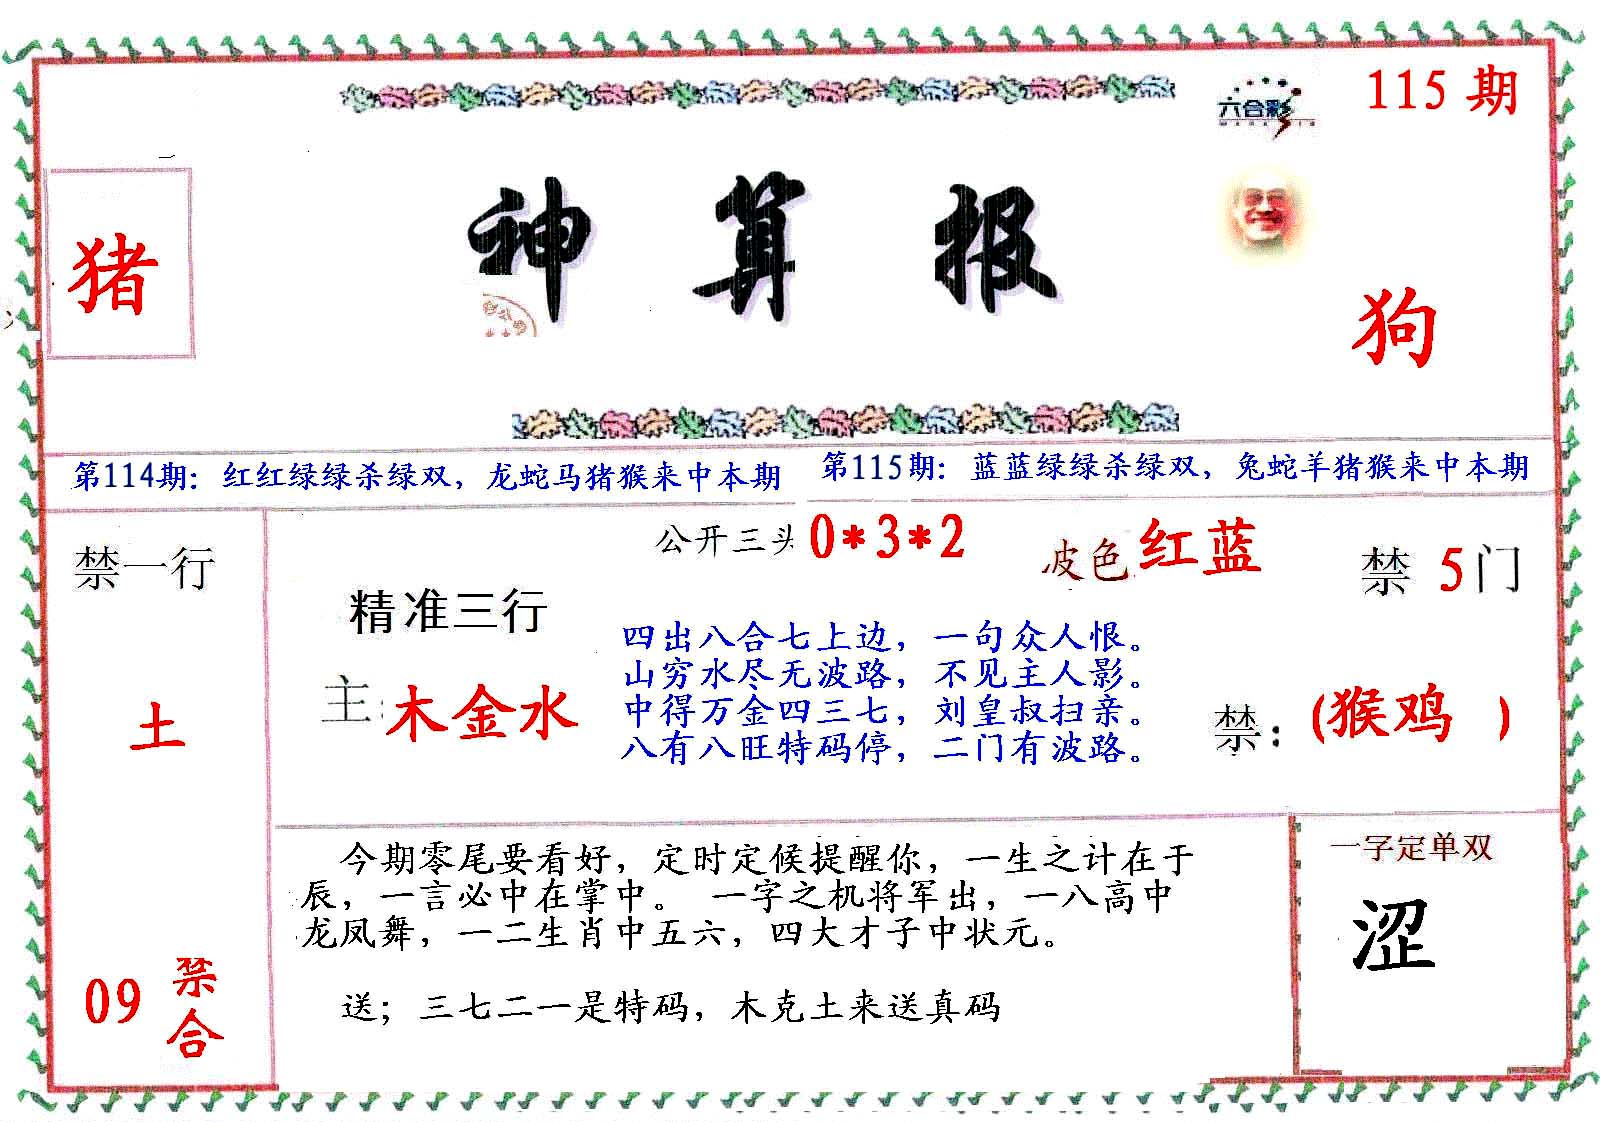 六合彩
115 期
猪
神算报
狗
第114期：红红绿绿杀绿双，龙蛇马猪猴来中本期
第115期：蓝蓝绿绿杀绿双，兔蛇羊猪猴来中本期
禁一行
土
09 禁合
公开三头 0*3*2
波色 红蓝
禁 5 门
精准三行
主: 木金水
四出八合七上边，一句众人恨。
山穷水尽无波路，不见主人影。
中得万金四三七，刘皇叔扫亲。
八有八旺特码停，二门有波路。
禁: (猴鸡 )
今期零尾要看好，定时定候提醒你，一生之计在于
辰，一言必中在掌中。 一字之机将军出，一八高中
龙凤舞，一二生肖中五六，四大才子中状元。
送；三七二一是特码，木克土来送真码
一字定单双
涩